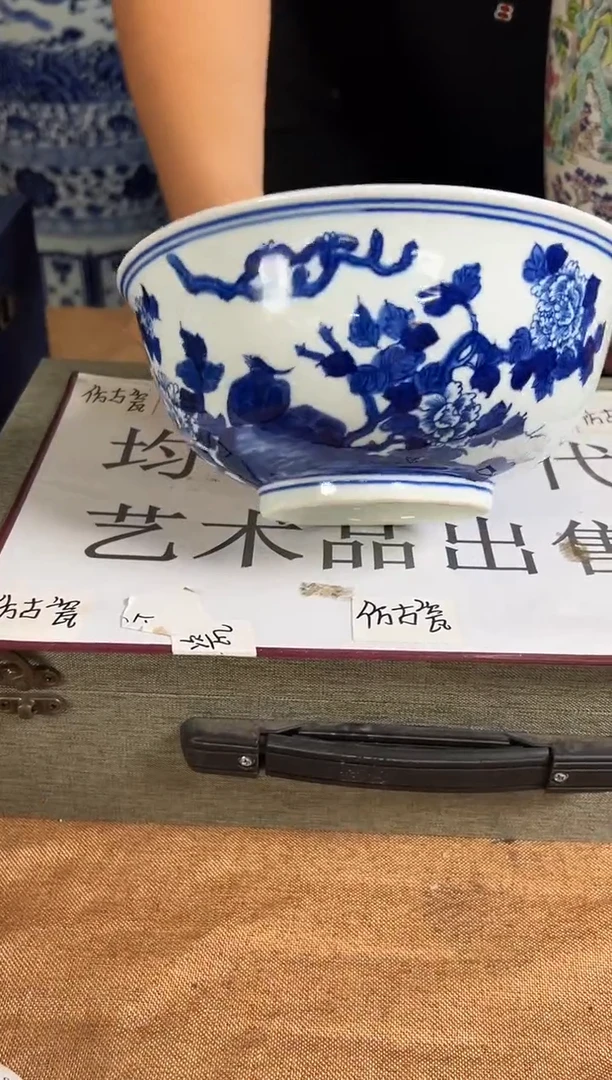 仿古瓷
均 代
艺术品出售
仿古瓷
仿古瓷